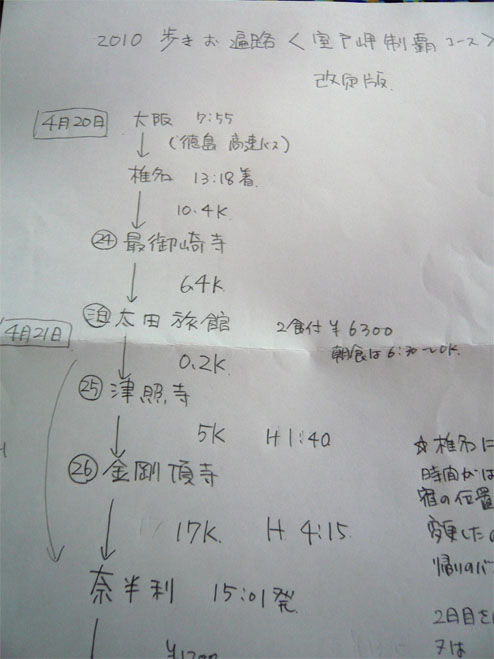 2010 歩きお遍路〈室戸岬制覇コース〉
改定版
4月20日 大阪 7:55
(徳島 高速バス)
椎名 13:18着
10.4K
㉔最御崎寺
6.4K
泊 太田旅館 2食付 ¥6300
朝食は6:30〜OK
4月21日
0.2K
㉕津照寺
5K H1:40
㉖金剛頂寺
17K H 4:15
奈半利 15:01発
☆椎名に
時間がは
宿の位置
変更した
帰りのバ
2日目を
又は